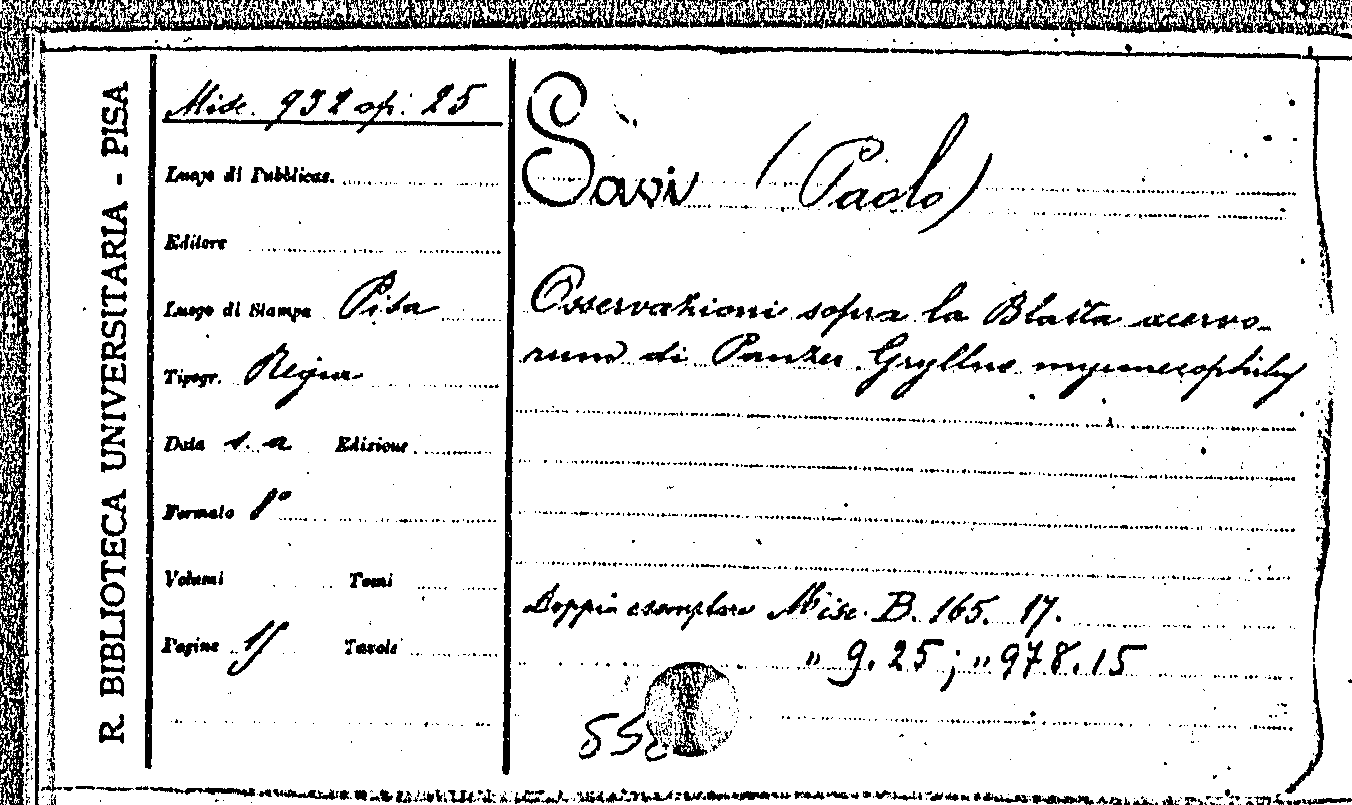 R. BIBLIOTECA UNIVERSITARIA - PISA
Misc. 932 op. 25
Luogo di Pubblicaz.
Editore
Luogo di Stampa Pisa
Tipogr.
Data s. a Edizione
Formato 8°
Volumi Tomi
Pagine 15 Tavole
Savi (Paolo)
Osservazioni sopra la Blatta acervo-
rum di Panzer Gryllus myrmecophilus
Doppio esemplare Misc. B. 165. 17.
" 9.25; " 978.15